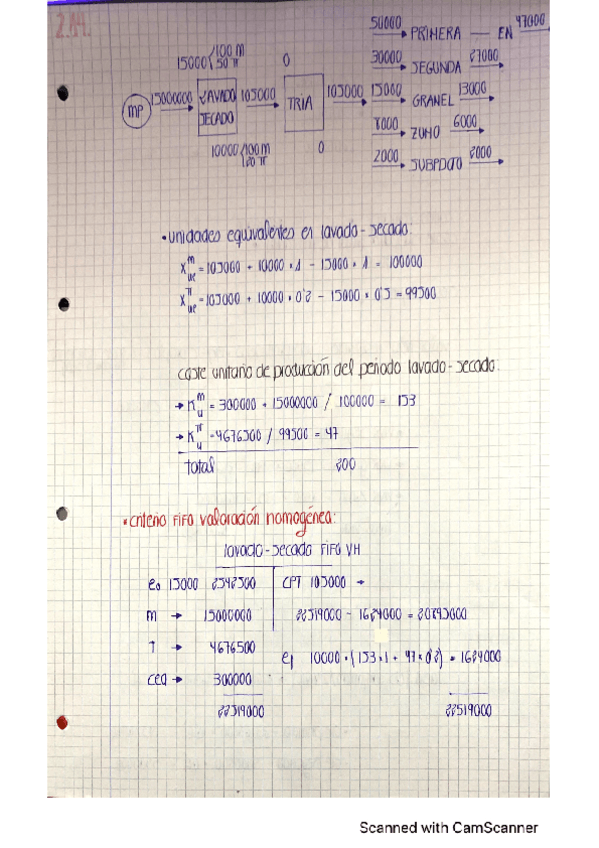 2.14.
50000 PRIMERA — EN 47000
30000 SEGUNDA 27000
15000 GRANEL 13000
8000 ZUMO 6000
2000 SUBPDCTO 2000
15000 / 100 m \ 50 π
0
MP 15000000 LAVADO SECADO 105000 TRIA 105000
10000 / 100 m \ 20 π
0
• unidades equivalentes en lavado-secado:
X m ue = 105000 + 10000 • 1 - 15000 • 1 = 100000
X π ue = 105000 + 10000 • 0'2 - 15000 • 0'5 = 99500
coste unitario de producción del periodo lavado-secado:
→ K m u = 300000 + 15000000 / 100000 = 153
→ K π u = 4676500 / 99500 = 47
total 200
• criterio FIFO valoración homogénea:
lavado-secado FIFO VH
e0 15000 2542500 CPT 105000 →
m → 15000000 22519000 - 1624000 = 20895000
T → 4676500
ef 10000 • (153 • 1 + 47 • 0'2) = 1624000
cea → 300000
22519000 22519000
Scanned with CamScanner